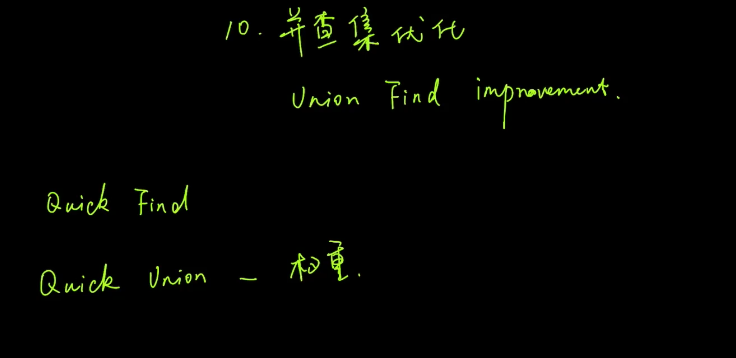 10. 并查集优化
Union Find improvement.
Quick Find
Quick Union - 权重.